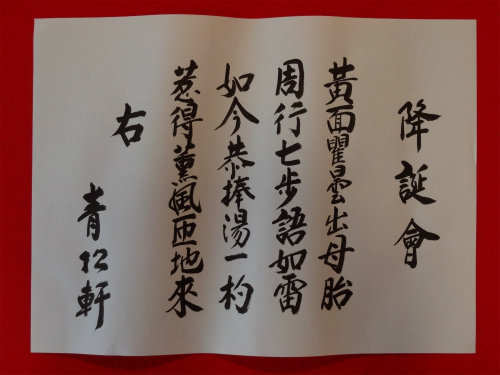 降誕會
黃面瞿曇出母胎
周行七步語如雷
如今恭捧湯一杓
惹得薰風匝地來
右
青松軒